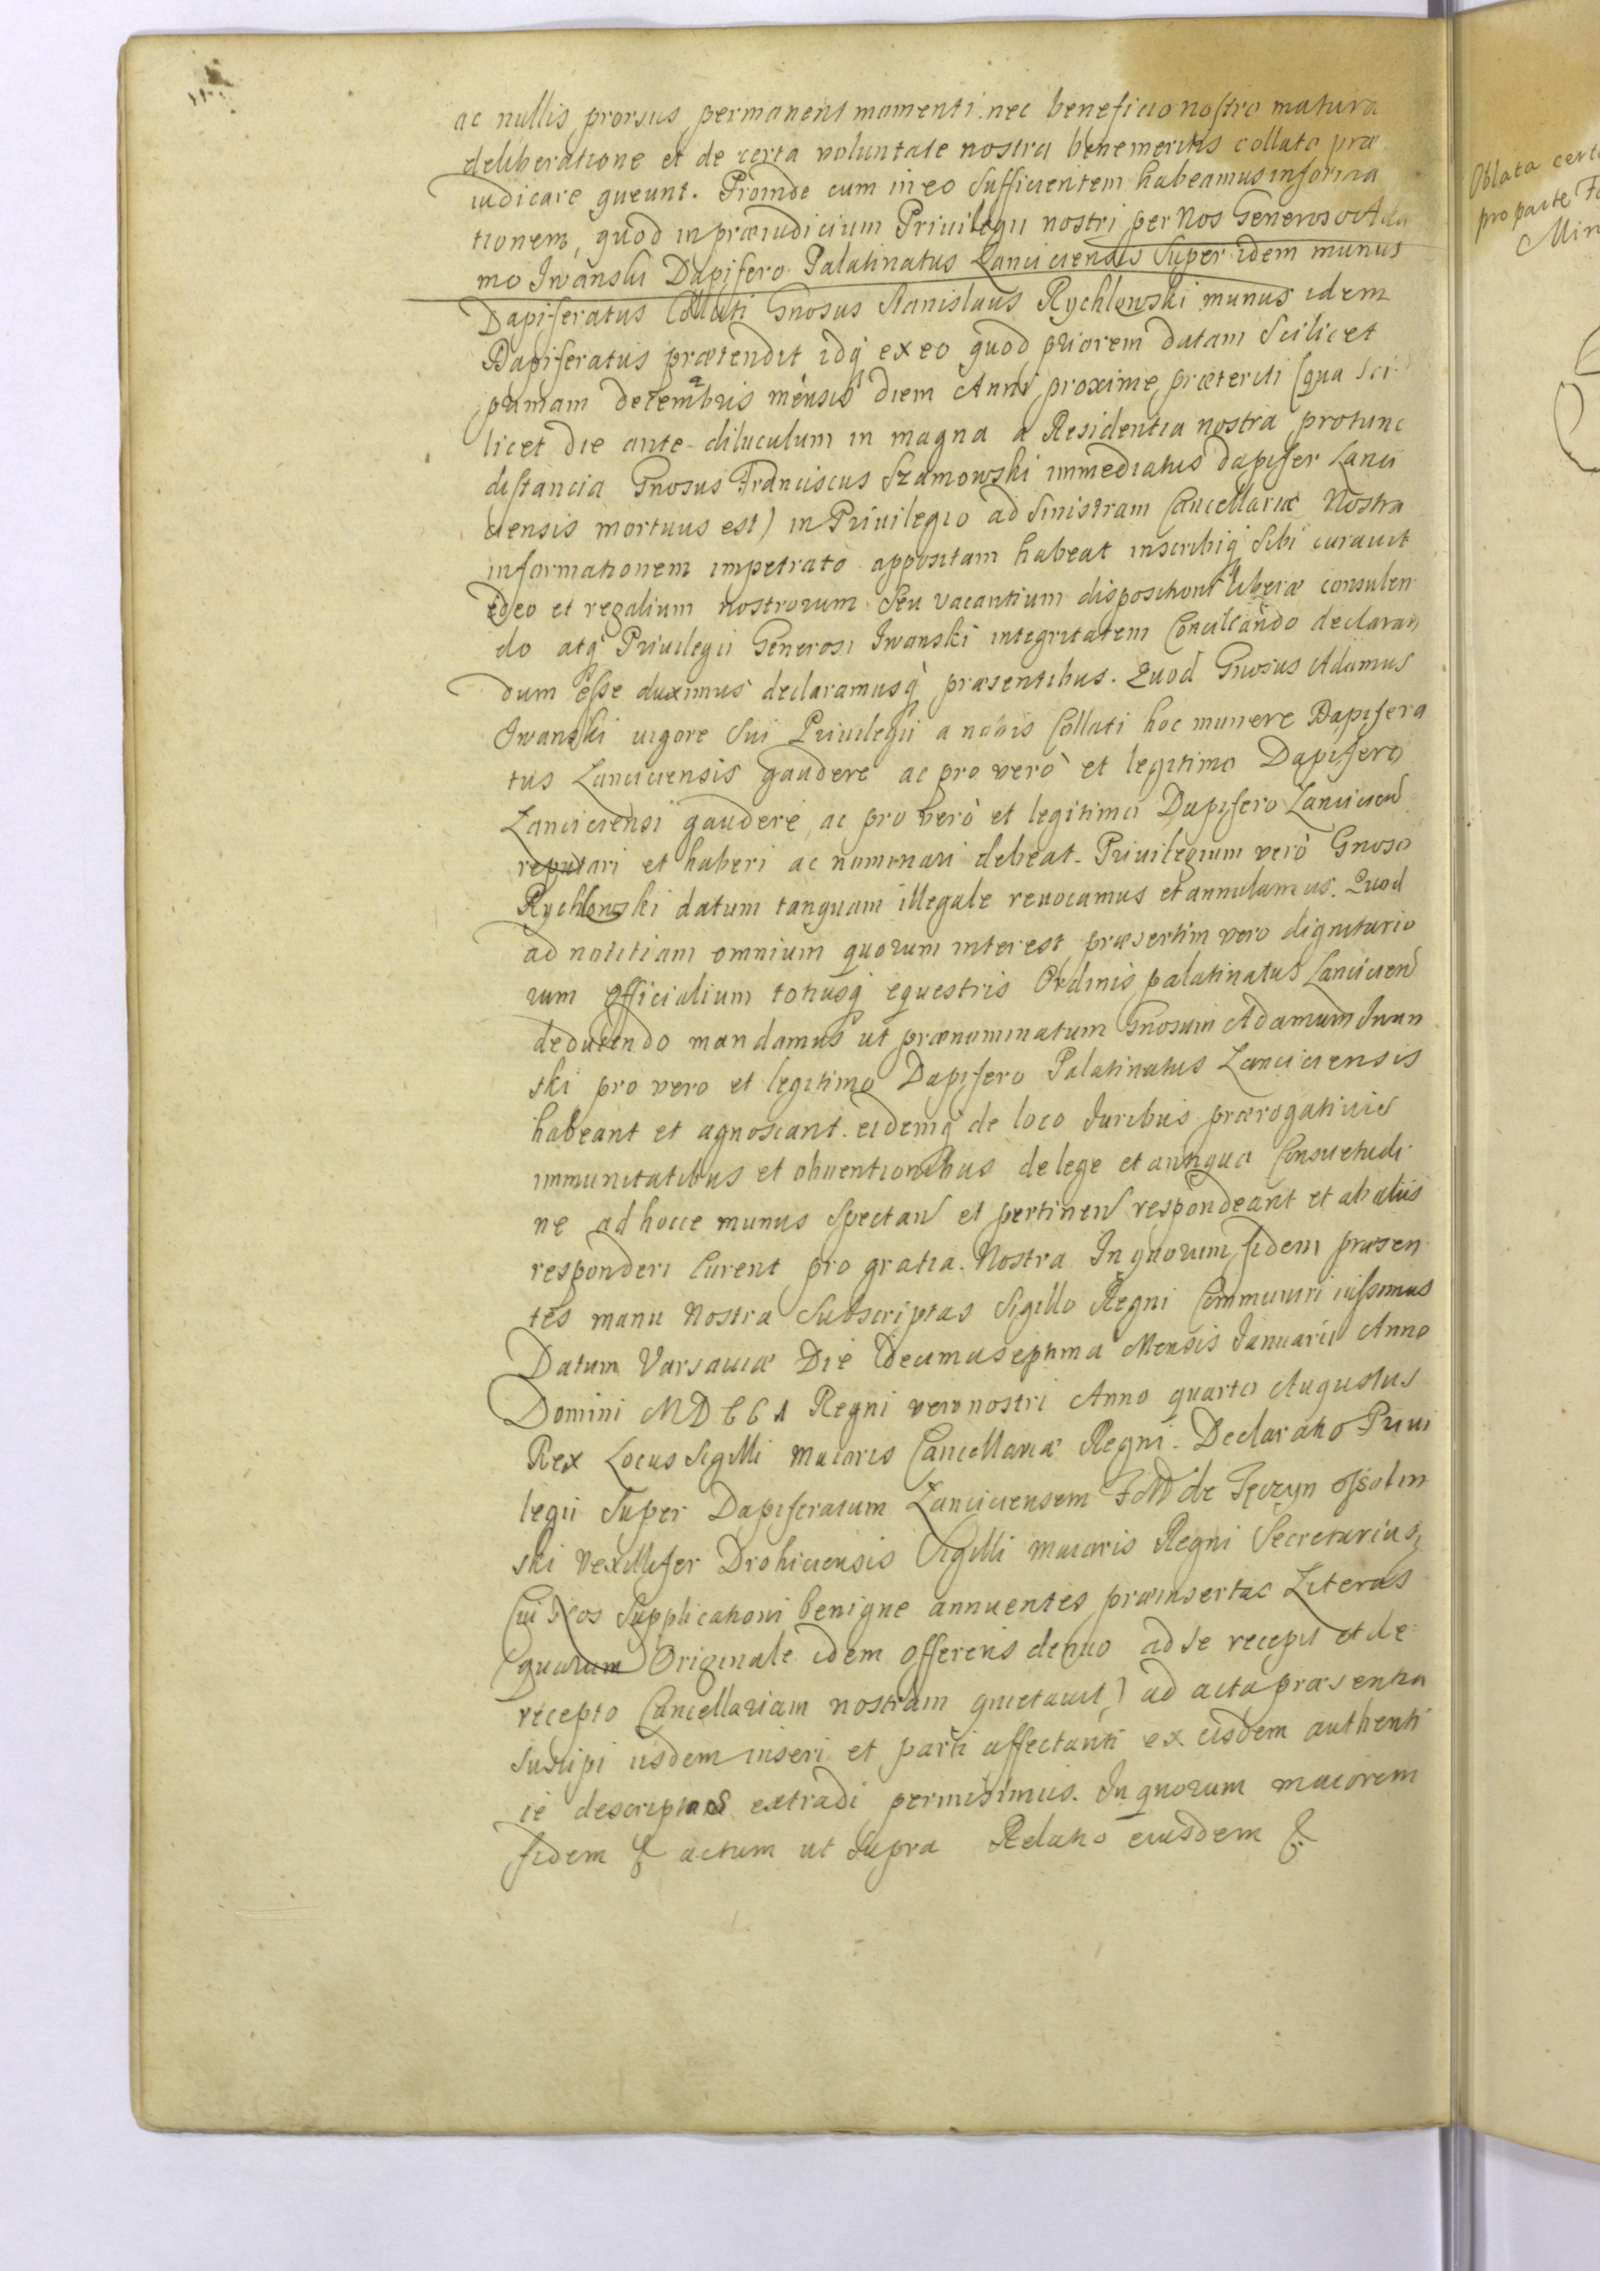 ac nullis prorsus permanent momenti. nec beneficio nostro matura
deliberatione et de certa voluntate nostra benemeritis collato præ
iudicare queunt. Proinde cum in eo sufficientem habeamus informa
tionem, quod in præiudicium Privilegii nostri per Nos Generoso Ada
mo Iwanski Dapifero Palatinatus Lanciciensis super idem munus
Dapiferatus Collati Gnosus Stanislaus Rychlowski munus idem
Dapiferatus prætendit idq ex eo quod priorem datam scilicet
primam decembris mensis diem Anni proxime præteriti (qua sci
licet die ante diluculum in magna a Residentia nostra protunc
distancia Gnosus Franciscus Szamowski immediatus dapifer Lanci
ciensis mortuus est) in Privilegio ad sinistram Cancellariæ Nostra
informationem impetrato appositam habeat inscribiq sibi curavit
ideo et regalium nostrorum seu vacantium dispositioni liberæ consulen
do atq Privilegii Generosi Iwanski integritatem declaran
dum esse duximus declaramusq præsentibus. Quod Gnosus Adamus
Iwanski vigore sui Privilegii a nobis Collati hoc munere Dapifera
tus Lanciciensis gaudere ac pro vero et legitimo Dapifero
Lanciciensi gaudere ac pro vero et legitimo Dapifero Lancicien
reputari et haberi ac nominari debeat. Privilegium vero Gnoso
Rychlowski datum tanquam illegale revocamus et annulamus. Quod
ad notitiam omnium quorum interest præsertim vero dignitario
rum officialium totiusq equestris Ordinis palatinatus Lancicien
deducendo mandamus ut prænominatum Gnosum Adamum Iwan
ski pro vero et legitimo Dapifero Palatinatus Lanciciensis
habeant et agnoscant. eidemq de loco Iuribus prærogativis
immunitatibus et obventionibus de lege et antiqua Consuetudi
ne ad hocce munus spectan et pertinen respondeant et ab aliis
responderi curent pro gratia Nostra In quorum fidem præsen
tes manu Nostra Subscriptas Sigillo Regni Communiri iussimus
Datum Varsaviæ Die decima septima Mensis Ianuarii Anno
Domini MDCCI Regni vero nostri Anno quarto Augustus
Rex Locus Sigilli maioris Cancellariæ Regni. Declaratio Privi
legii super Dapiferatum Lanciciensem de Tęczyn Ossolin
ski Vexillifer Drohiciensis Sigilli maioris Regni Secretarius,
Cui Nos Supplicationi benigne annuentes præinsertas Literas
(quarum Originale idem offerens denuo ad se recepit et de
recepto Cancellariam nostram quietavit) ad acta præsentia
suscipi iisdem inseri et parti affectanti ex eisdem authenti
ce descriptas extradi permisimus. In quorum maiorem
fidem & actum ut supra Relatio eiusdem &
Oblata
pro parte